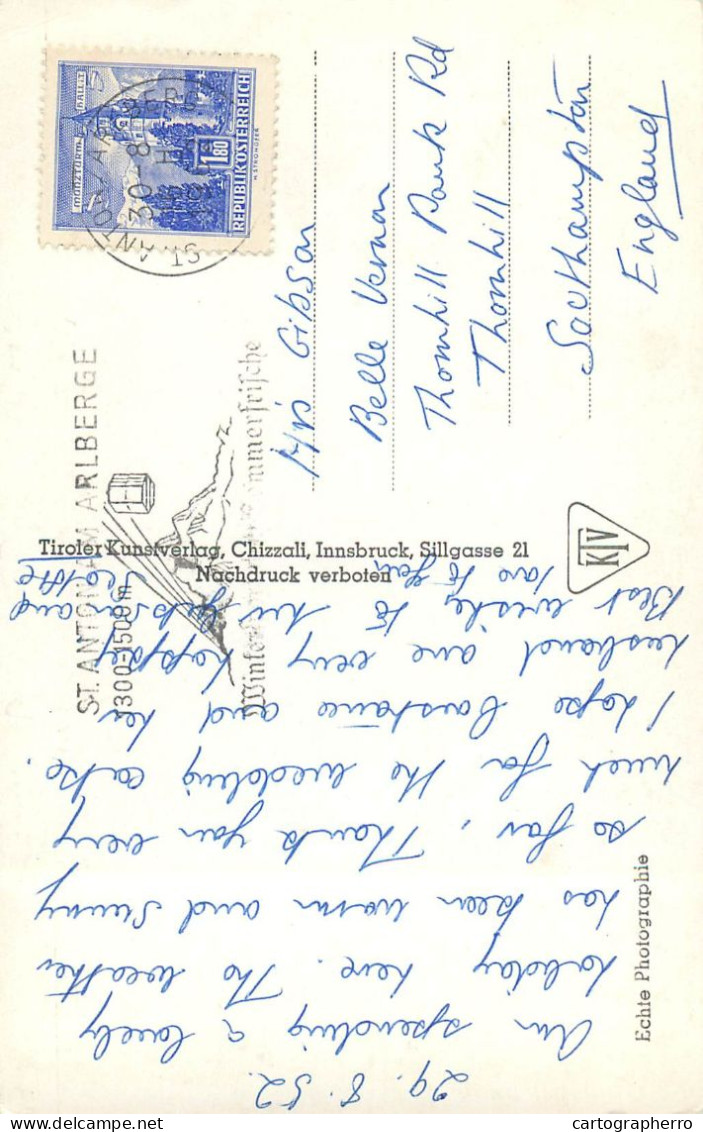 29. 8. 52.
Am spending a lovely
holiday here. The weather
has been warm and sunny
so far. Thank you very
much for the wedding cake.
I hope Constance and her
husband are very happy
Best wishes to Mr Gibson and
too to you,
Mrs Gibson
Belle Vernon
Thornhill Park Rd
Thornhill
Southampton
England
MÜNZTURM HALL I.T.
1.80
REPUBLIK ÖSTERREICH
ST. ANTON/ARLBERG
30-8
ST. ANTON AM ARLBERGE
1300-1500m
Winter
ommerfrische
Tiroler Kunstverlag, Chizzali, Innsbruck, Sillgasse 21
Nachdruck verboten
KTV
Echte Photographie
cartographerro